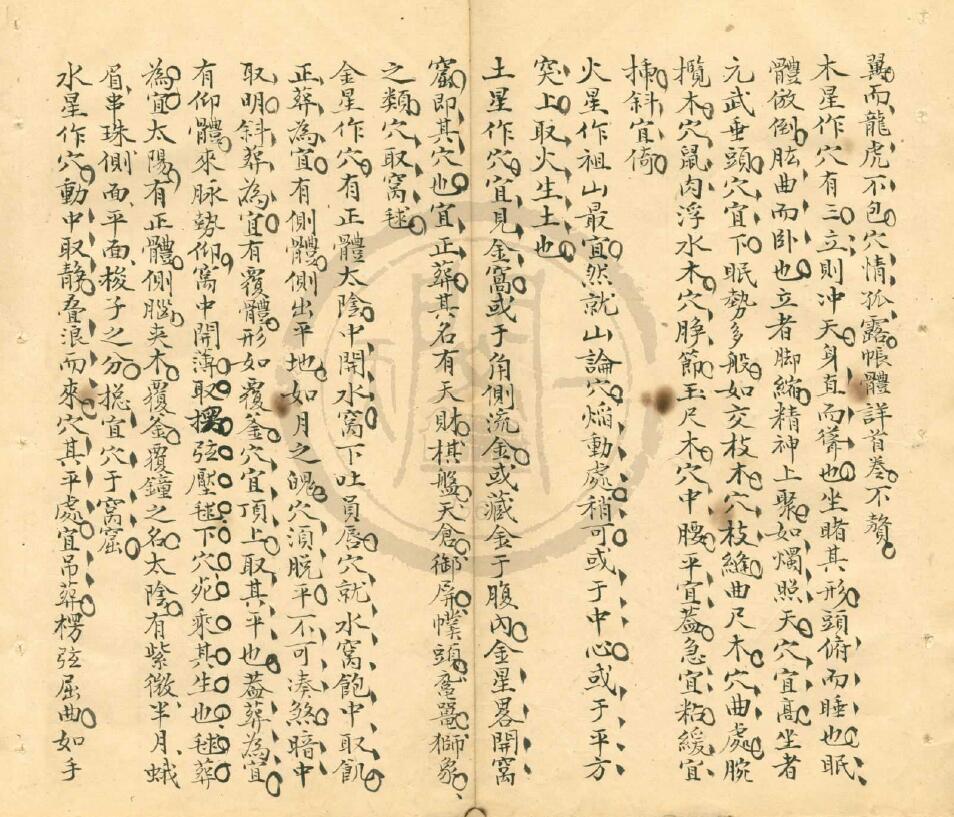 翼而龍虎不包穴情孤露帳體詳首卷不贅
木星作穴有三立則冲天身直而聳也坐睹其形頭俯而睡也眠
體倣倒肱曲而卧也立者脚縮精神上聚如燭照天穴宜高坐者
元武垂頭穴宜下眠勢多般如交枝木穴枝縫曲尺木穴曲處腕
攬木穴鼠肉浮水木穴脖節玉尺木穴中腰平宜蓋急宜粘緩宜
插斜宜倚
火星作祖山最宜然就山論穴焰動處稍可或于中心或于平方
突上取火生土也
土星作穴宜見金窩或于角側流金或藏金于腹內金星畧開窩
窟即其穴也宜正葬其名有天財棋盤天倉御屏幞頭鼂黽獅象
之類穴取窩毬
金星作穴有正體太陰中開水窩下吐員唇穴就水窩飽中取飢
正葬為宜有側體側出平地如月之魄穴須脱平不可凑煞暗中
取明斜葬為宜有覆體形如覆釜穴宜頂上取其平也蓋葬為宜
有仰體來脉勢仰窩中開薄取楞弦壓毬下穴宛乘其生也毬葬
為宜太陽有正體側腦夾木覆釜覆鐘之名太陰有紫微半月蛾
眉串珠側面平面梭子之分揔宜穴于窩窟
水星作穴動中取静叠浪而來穴其平處宜吊葬楞弦屈曲如手